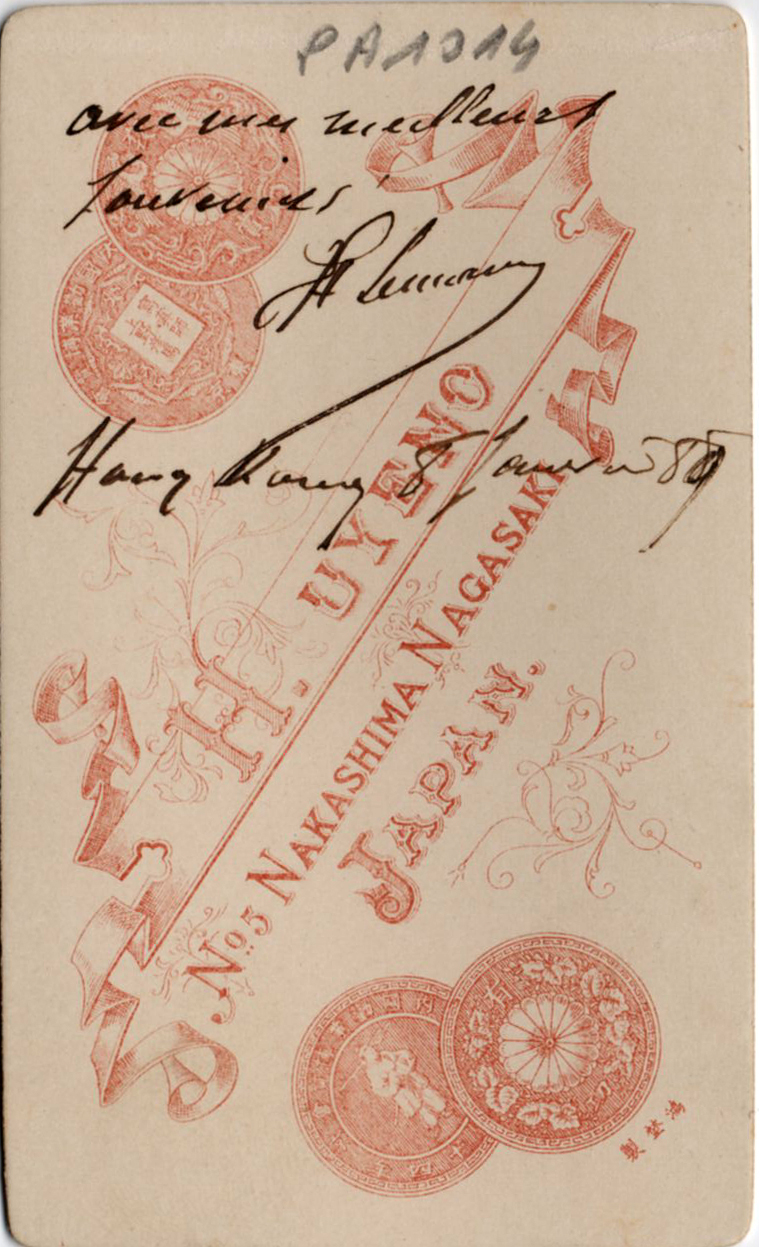 PA1914
avec mes meilleurs
souvenirs
Hong Kong 8 Janvier
H. UYENO
No. 5 NAKASHIMA NAGASAKI
JAPAN.